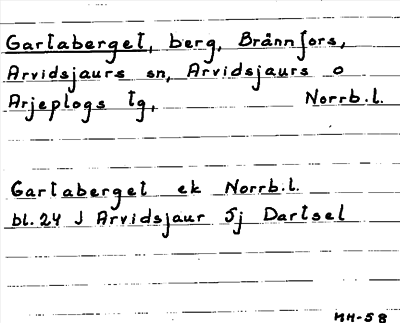 Gartaberget, berg, Brännfors,
Arvidsjaurs sn, Arvidsjaurs o
Arjeplogs tg, Norrb.l.
Gartaberget ek Norrb.l.
bl. 24 J Arvidsjaur 5j Dartsel
MH-58